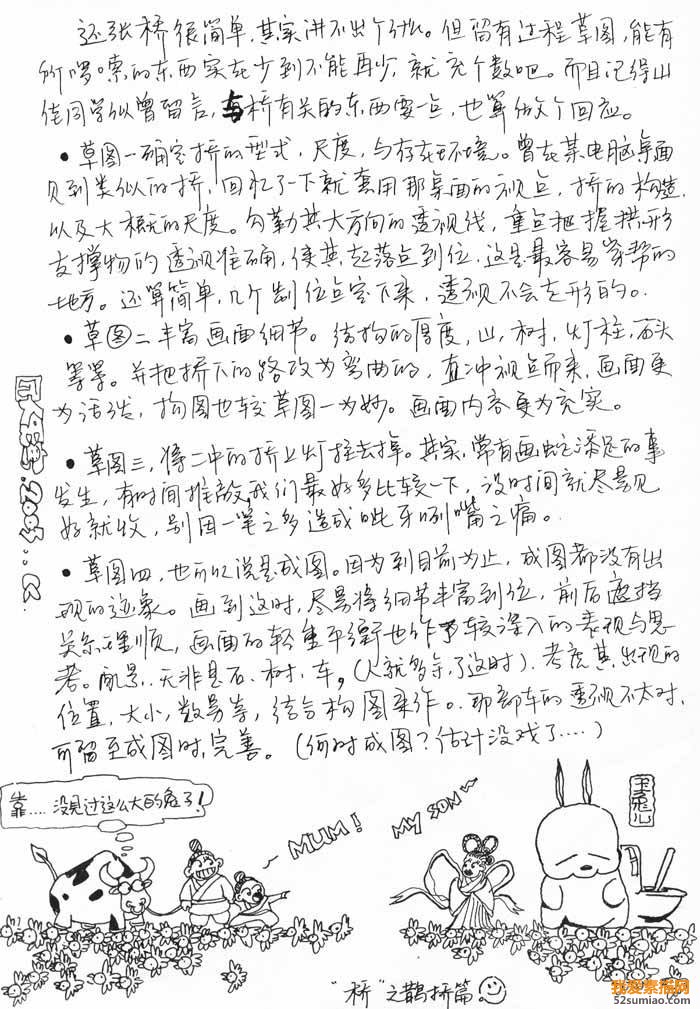 这张桥很简单,其实讲不出个什么。但留有过程草图,能有
所啰嗦的东西实在少到不能再少,就充个数吧。而且记得山
佳同学似曾留言,与桥有关的东西要一点,也算做个回应。
• 草图一确定桥的型式,尺度,与存在环境。曾在某电脑桌面
见到类似的桥,回忆了一下就套用那桌面的视点,桥的构造,
以及大概的尺度。勾勒其大方向的透视线,重点把握拱形
支撑物的透视准确,使其起落点到位,这是最容易穿帮的
地方。还算简单,几个制位点定下来,透视不会走形的。
• 草图二丰富画面细节。结构的厚度,山,树,灯柱,石头
等等。并把桥下的路改为弯曲的,直冲视点而来,画面更
为活泼,构图也较草图一为妙。画面内容更为充实。
• 草图三,将二中的桥上灯柱去掉。其实,常有画蛇添足的事
发生,有时间推敲,我们最好多比较一下,没时间就尽量见
好就收,别因一笔之多造成呲牙咧嘴之痛。
• 草图四,也可以说是成图。因为到目前为止,成图都没有出
现的迹象。画到这时,尽量将细节丰富到位,前后遮挡
关系理顺,画面的轻重平衡也作了较深入的表现与思
考。配景,无非是石、树、车,(人就省了这时)。考虑其出现的
位置,大小,数量等,结合构图来作。那部车的透视不太对,
可留至成图时完善。(何时成图?估计没戏了....)
2007
靠....没见过这么大的兔子!
MUM!
MY SON~
玉兔儿
“桥”之鹊桥篇。
我爱素描网
52sumiao.com